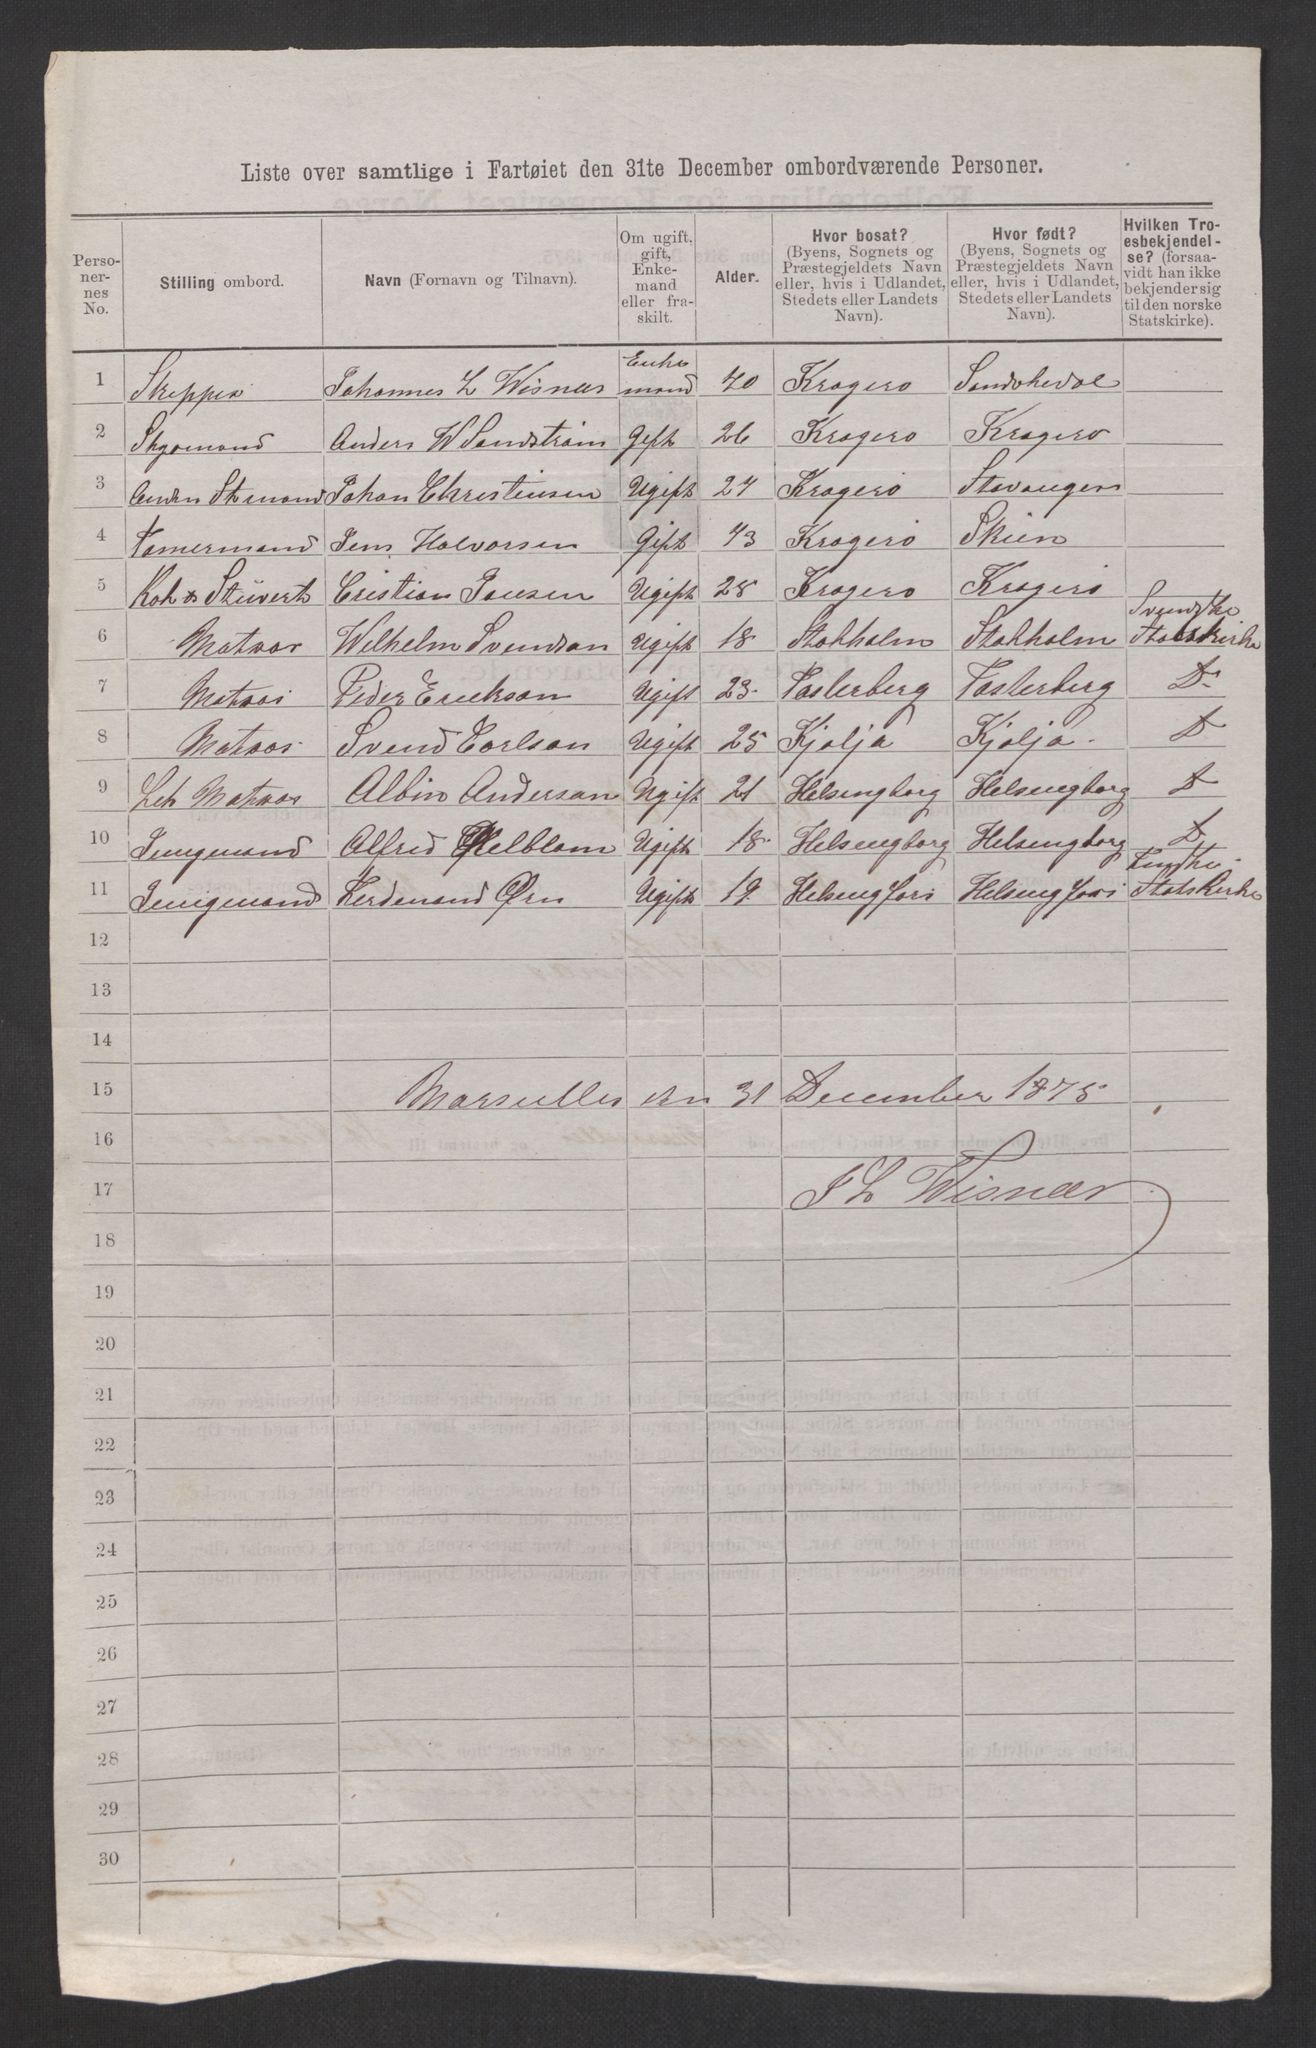 Liste over samtlige i Fartøiet den 31te December ombordværende Personer.
Personernes No. | Stilling ombord. | Navn (Fornavn og Tilnavn). | Om ugift, gift, Enkemand eller fraskilt. | Alder. | Hvor bosat? (Byens, Sognets og Præstegjeldets Navn eller, hvis i Udlandet, Stedets eller Landets Navn). | Hvor født? (Byens, Sognets og Præstegjeldets Navn eller, hvis i Udlandet, Stedets eller Landets Navn). | Hvilken Troesbekjendelse? (forsaavidt han ikke bekjender sig til den norske Statskirke).
1 Skipper Johannes L Wisnæs Enkemand 40 Kragerø Sandøkedal
2 Styrmand Anders W Sandstrøm Gift 26 Kragerø Kragerø
3 Anden Stmand Johan Christensen Ugift 27 Kragerø Stavanger
4 Tømermand Jens Halvorsen Gift 43 Kragerø Skien
5 Kok & Stüvert Cristian Jansen Ugift 28 Kragerø Kragerø
6 Matros Wilhelm Svendson Ugift 18 Stokholm Stokholm Svendske Statskirke
7 Matros Peder Erikson Ugift 23 Vasterberg Vasterberg Do
8 Matros Svend Carlson Ugift 25 Kjølja Kjølja Do
9 Let Matros Albin Anderson Ugift 21 Helsingborg Helsingborg Do
10 Jungmand Alfred Kjelblom Ugift 18 Helsingborg Helsingborg Do
11 Jungmand Ferdenand Ørn Ugift 19 Helsingfors Helsingfors Finske Statskirke
12
13
14
15 Marseilles den 31 December 1875
16
17 J L Wisnæs
18
19
20
21
22
23
24
25
26
27
28
29
30